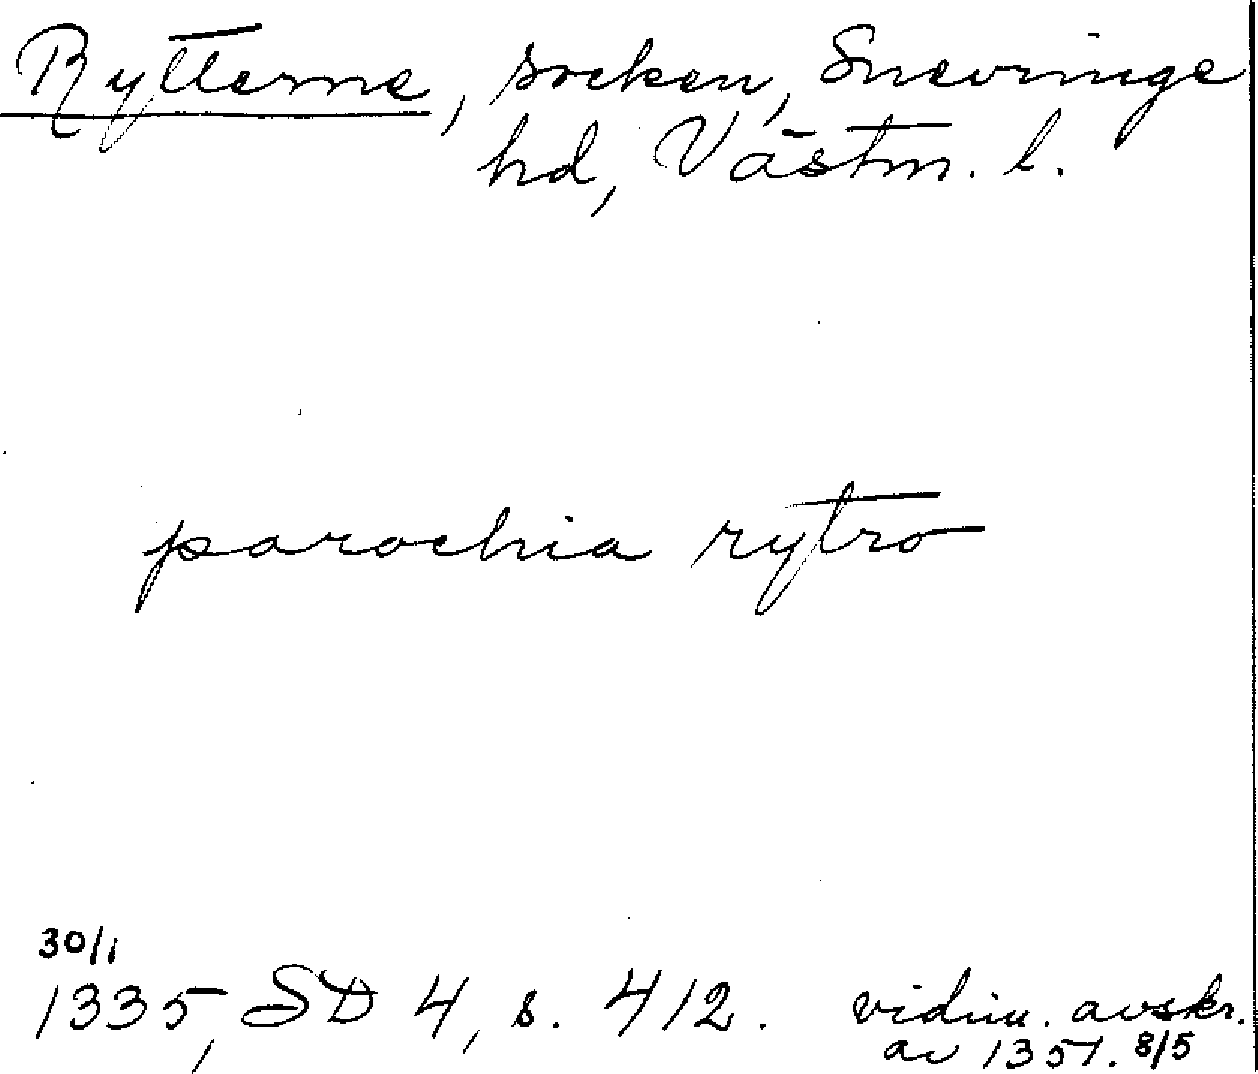 Rytterne, socken, Snevringe
hd, Västm. l.
parochia rytro
30/1
1335, SD 4, s. 412. vidim. avskr.
av 1351. 8/5